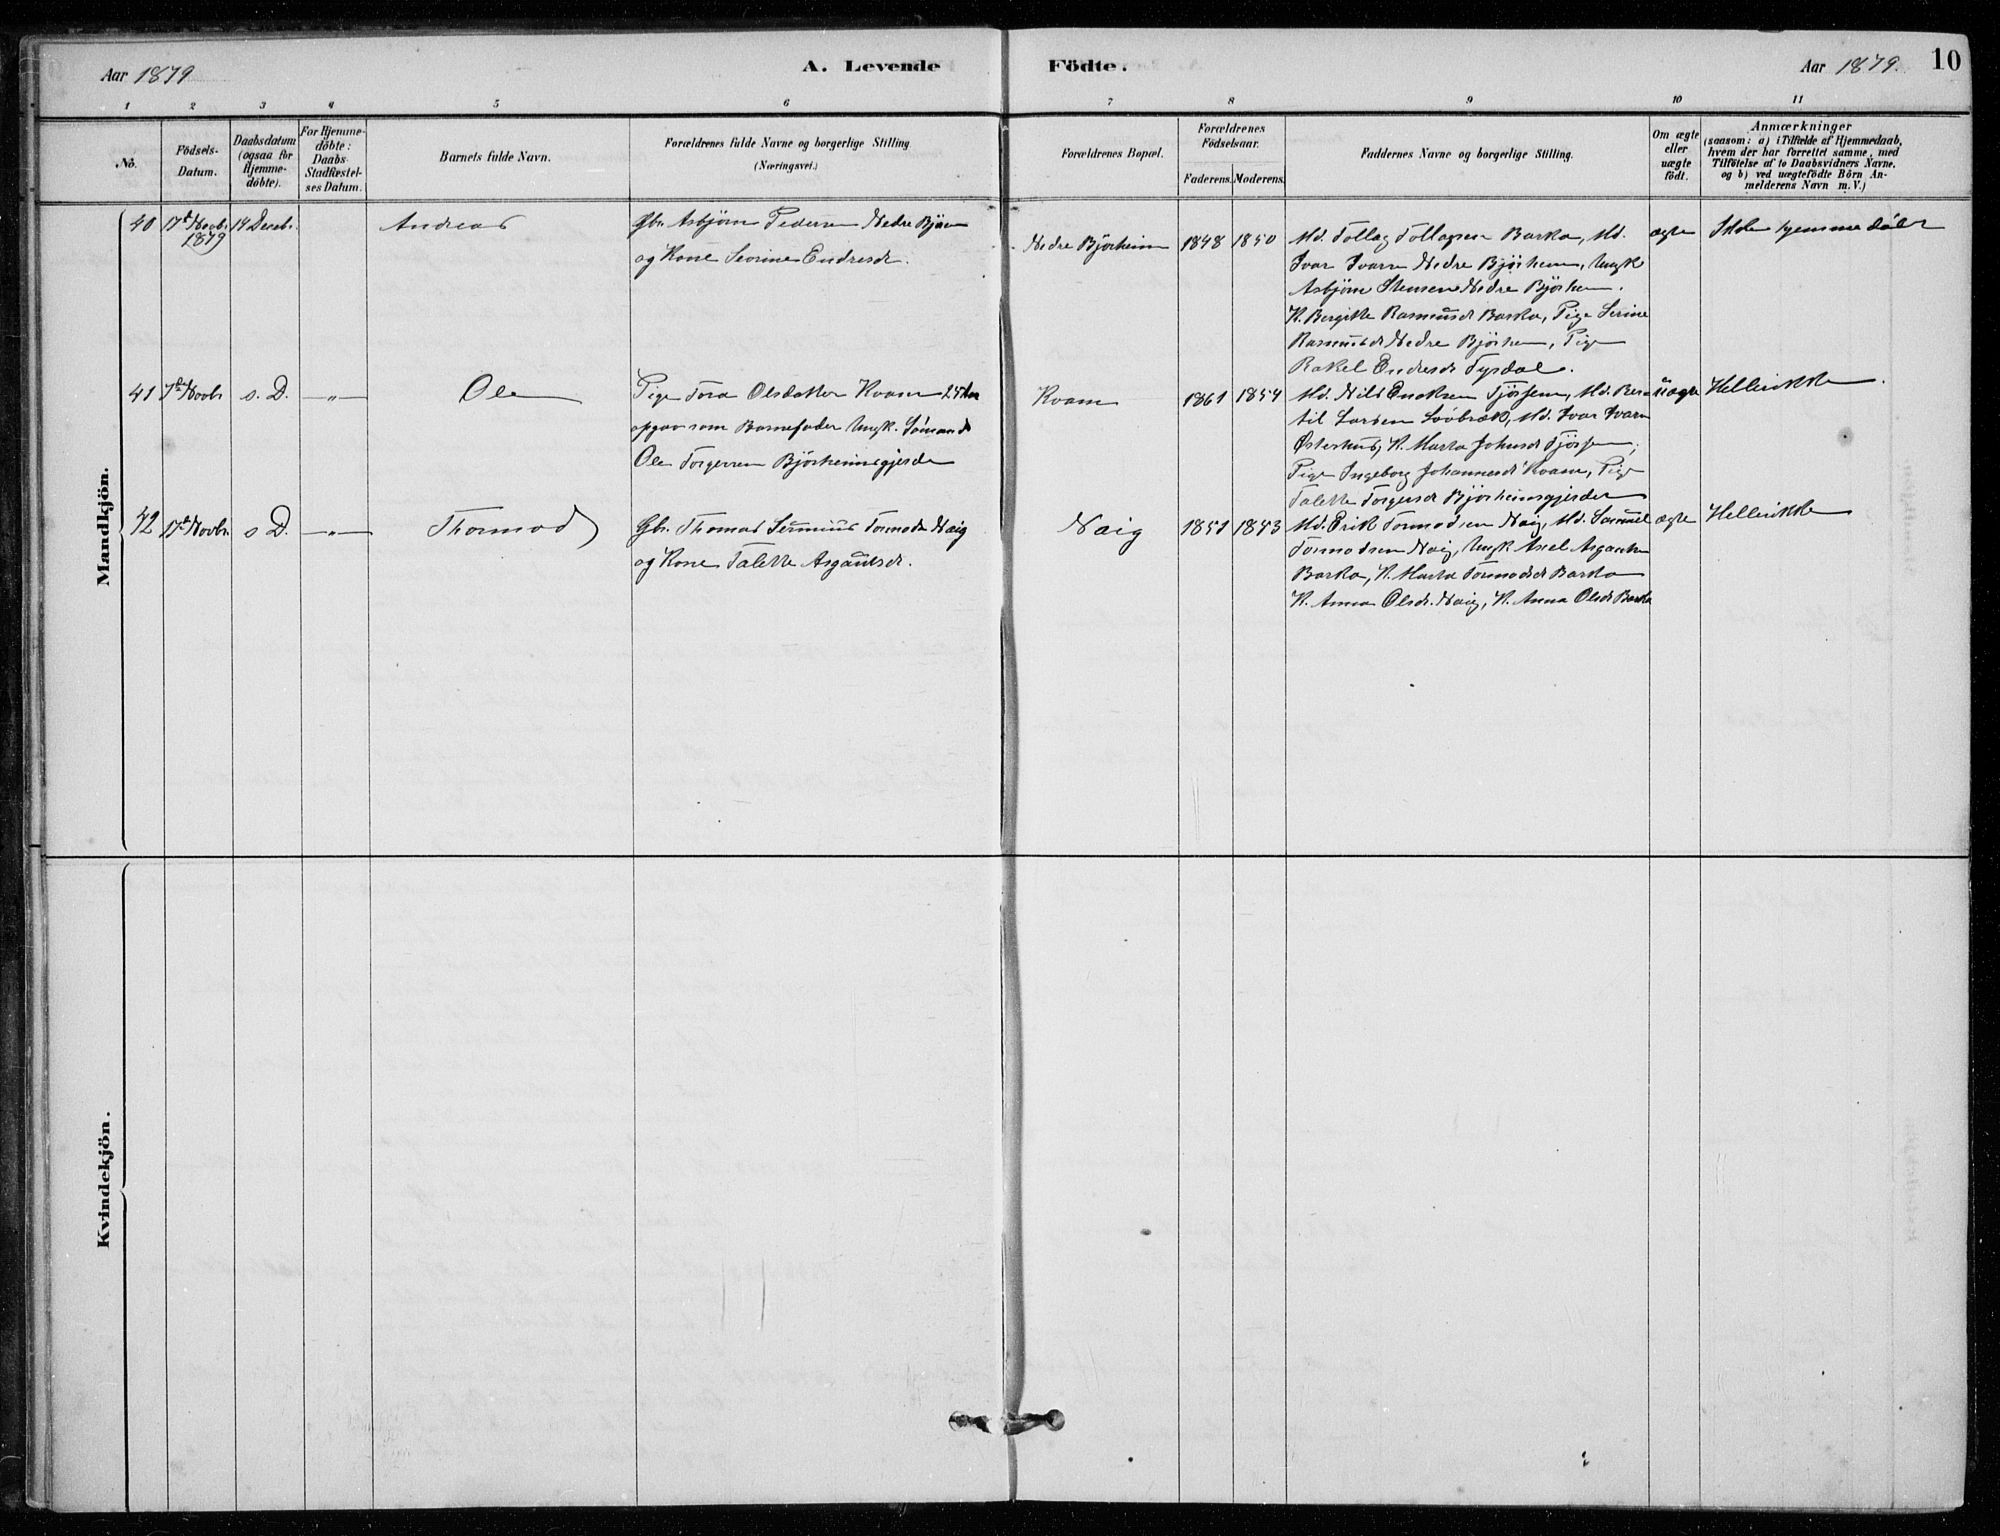 Aar 1879
A. Levende
Födte.
Aar 1879.
10
1 2 3 4 5 6 7 8 9 10 11
No.
Födsels-
Datum.
Daabsdatum
(ogsaa for
Hjemme-
döbte).
For Hjemme-
döbte:
Daabs-
Stadfæstel-
ses Datum.
Barnets fulde Navn.
Forældrenes fulde Navne og borgerlige Stilling
(Næringsvei.)
Forældrenes Bopæl.
Forældrenes
Födselsaar.
Faderens. Moderens.
Faddernes Navne og borgerlige Stilling.
Om ægte
eller
uægte
födt.
Anmærkninger
(saasom: a) i Tilfælde af Hjemmedaab,
hvem der har forrettet samme, med
Tilföielse af to Daabsvidners Navne.
og b) ved uægtefödte Börn An-
melderens Navn m. V.)
Mandkjön.
40
17d Novbr
1879
14 Decebr.
Andreas
Gbr. Asbjörn Pedersen Nedre Björn
og Kone Serine Endresdr.
Nedre Björheim
1848
1850
Md. Tollag Tollagsen Barka, Md.
Ivar Ivarsen Nedre Björheim, Ungk
Asbjörn Stensen Nedre Björheim.
K. Bergitte Rasmusdr Barka, Pige Serine
Rasmusdr Nedre Björheim, Pige
Rakel Endresdr Tysdal.
ægte
Ikke hjemmedöbt
41
7d Novbr
s. D.
—"—
Ole
Pige Tora Olsdatter Kvam
opgav som Barnefader Ungk. Sömand
Ole Torgersen Björheimsgjerde
Kvam
1861
1854
Md. Nils Enoksen Tjössem, Md. Ber-
til Larsen Lööbræk, Md. Ivar Ivarsn
Østerhus, K. Marta Johnsdr Tjössem,
Pige Ingeborg Johannesdr Kvam, Pige
Talette Torgersdr Björheimsgjerde
uægte
Hellerikke.
42
17d Novbr
s D.
—"—
Thormod
Gbr. Thomas Tormods Naig
og Kone Talette Asgautsdr.
Naig
1851
1853
Md. Erik Tormodsen Naig, Md. Samuel
Tormodsen Naig, Ungk Axel Asgautsn
Barka, K. Marta Tormodsdr Barka
K. Anna Olsdr. Naig, K. Anna Olsdr Barka
ægte
Hellerikke
Kvindekjön.